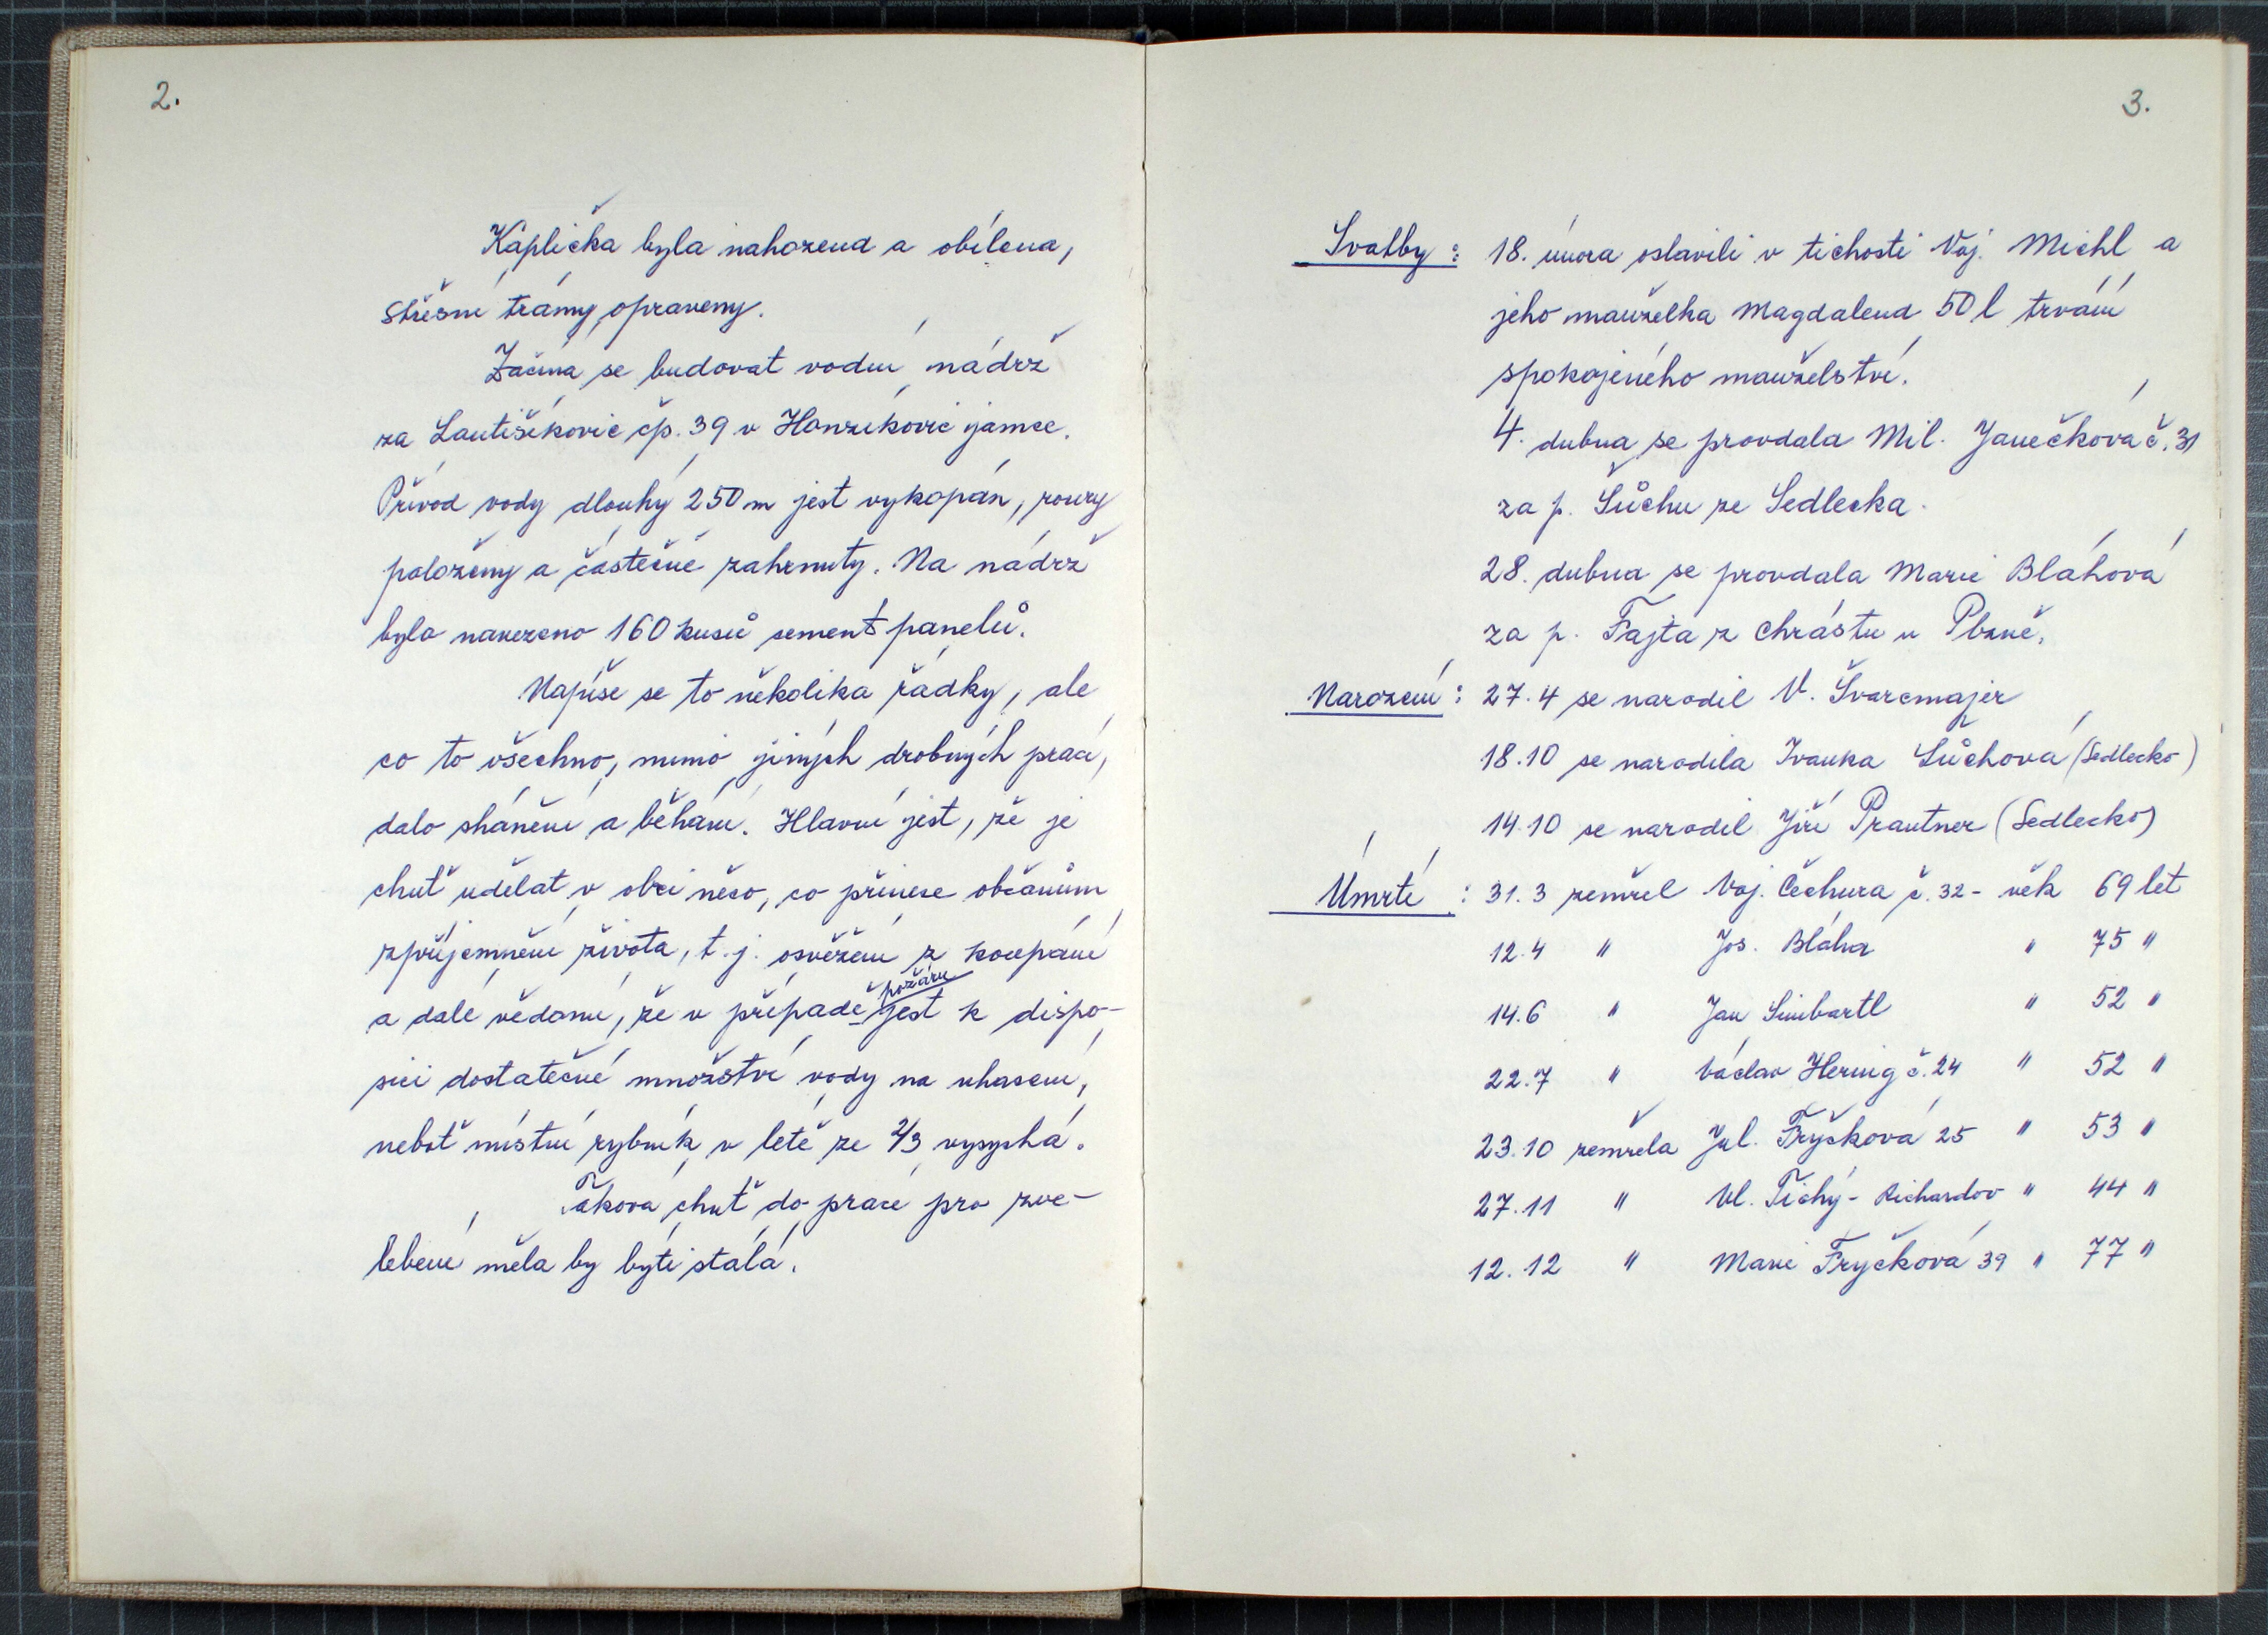 2.
Kaplička byla nahozena a obílena,
střešní trámy opraveny.
Začíná se budovat vodní nádrž
za Lautišíkovic čp. 39 v Honzíkovic jamce.
Přívod vody dlouhý 250 m jest vykopán, roury
položeny a částečně zahrnuty. Na nádrž
bylo navezeno 160 kusů sement panelů.
Napíše se to několika řádky, ale
co to všechno, mimo jiných drobných prací,
dalo shánění a běhání. Hlavní jest, že je
chuť udělat v obci něco, co přinese občanům
zpříjemnění života, t. j. osvěžení z koupání
a dále vědomí, že v případě požáru jest k dispo-
sici dostatečné množství vody na uhasení,
neboť místní rybník v létě ze 2/3 vysychá.
Taková chuť do práce pro zve-
lebení měla by býti stálá.
3.
Svatby: 18. února oslavili v tichosti Voj. Michl a
jeho manželka Magdalena 50 l trvání
spokojeného manželství.
4. dubna se provdala Mil. Janečková č. 31
za p. Šůchu ze Sedlecka.
28. dubna se provdala Marie Bláhová
za p. Fajta z Chrástu u Plzně.
Narození: 27.4 se narodil V. Švarcmajer
18.10 se narodila Ivanka Šůchová (Sedlecko)
14.10 se narodil Jiří Prautner (Sedlecko)
Úmrtí: 31.3 zemřel Voj. Čechura č. 32 - věk 69 let
12.4 " Jos. Bláha " 75 "
14.6 " Jan Simbartl " 52 "
22.7 " Václav Hering č. 24 " 52 "
23.10 zemřela Jul. Fryčková 25 " 53 "
27.11 " Vl. Tichý - Richardov " 44 "
12.12 " Marie Fryčková 39 " 77 "